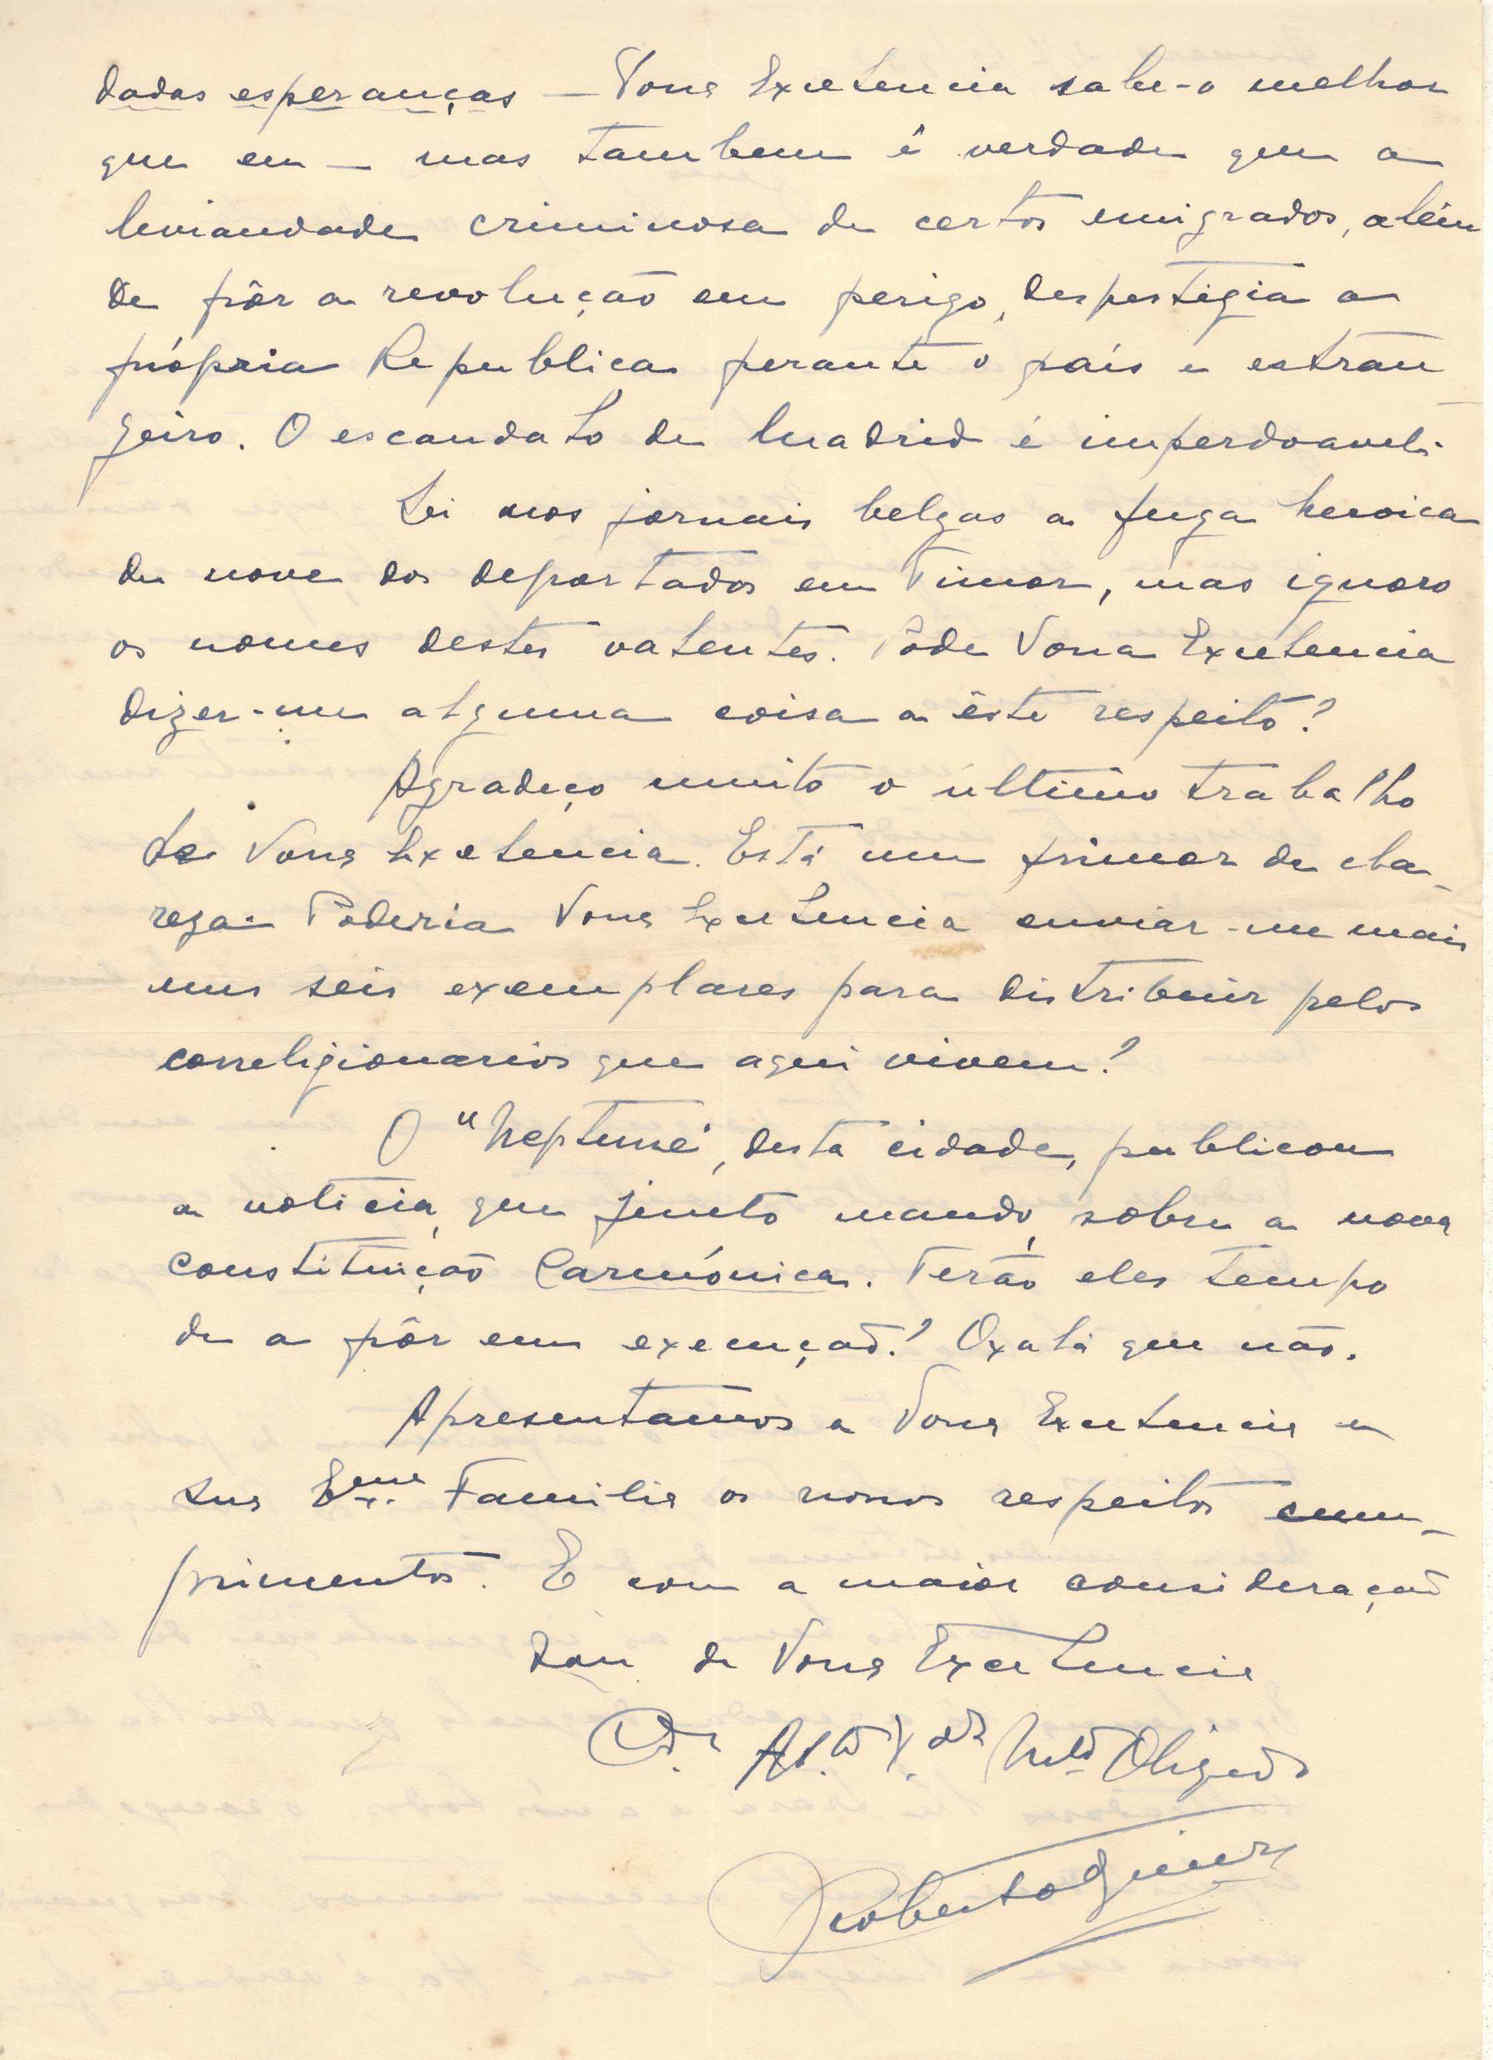 dadas esperanças — Vossa Excelencia sabe-o melhor
que eu — mas tambem é verdade que a
leviandade criminosa de certos emigrados, além
de pôr a revolução em perigo, despestigia a
própria Republica perante o país e estran
geiro. O escandalo de Madrid é imperdoavel.
Lei nos jornais belgas a fuga heroica
de nove dos deportados em Timor, mas ignoro
os nomes destes valentes. Póde Vossa Excelencia
dizer-me alguma coisa a êste respeito?
Agradeço muito o último trabalho
de Vossa Excelencia. Está um primor de cla-
reza. Poderia Vossa Excelencia enviar-me mais
uns seis exemplares para distribuir pelos
correligionarios que aqui vivem?
O "Neptune", desta cidade, publicou
a noticia, que junto mando, sobre a nova
constituição Carmónica. Terão eles tempo
de a pôr em execução? Oxalá que não.
Apresentamos a Vossa Excelencia e
sua Exma. Familia os nossos respeitos cum-
primentos. E com a maior consideração
sou de Vossa Excelencia
Cdr. At.to V.dor Mto Obrigado
Roberto